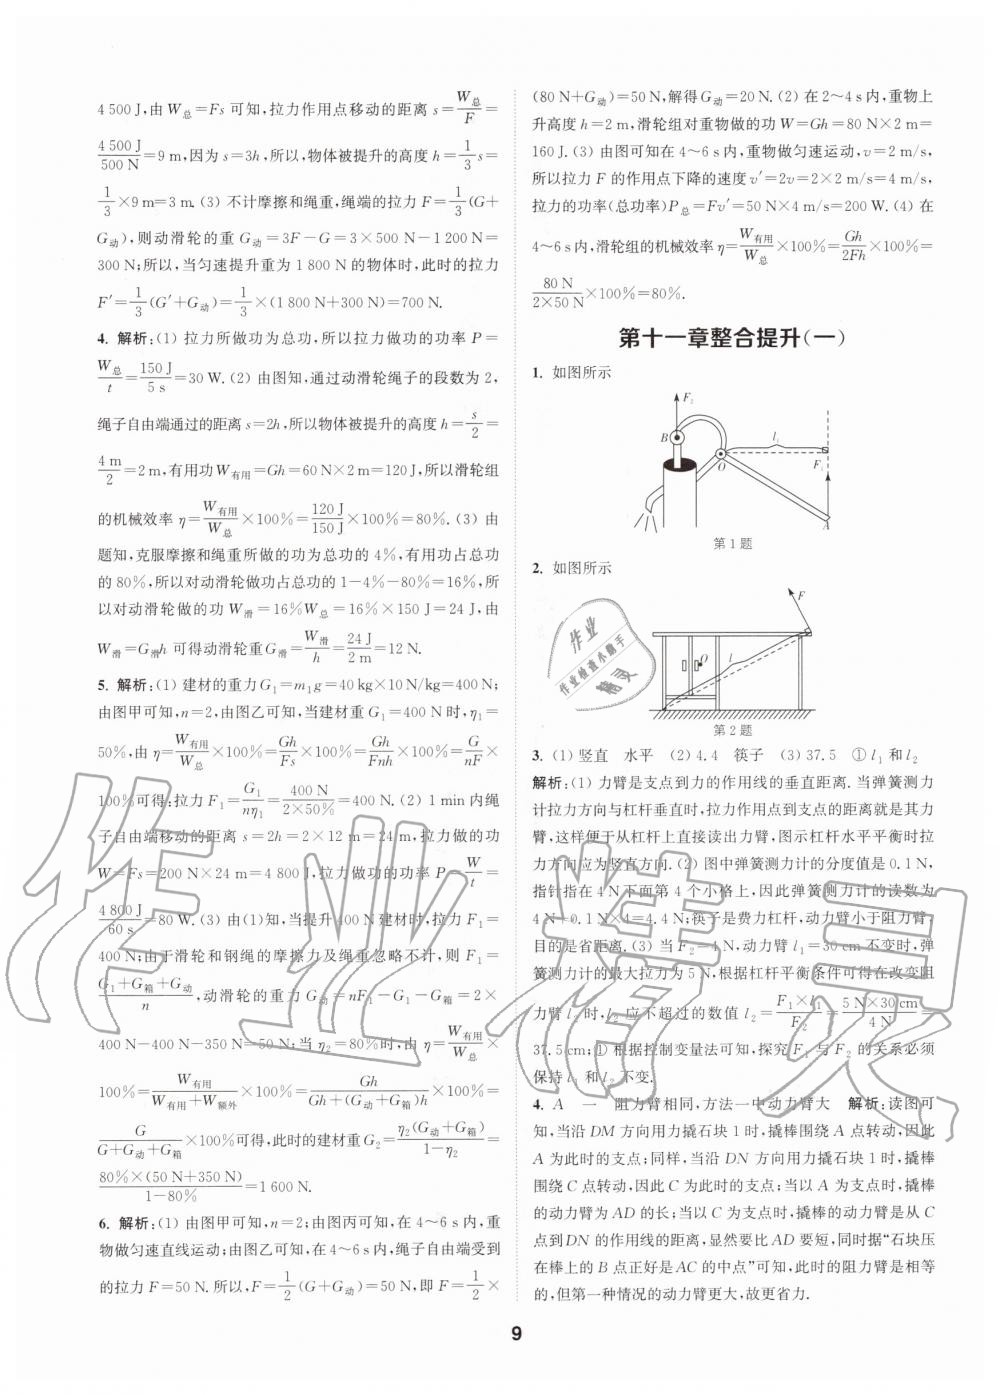 4 500 J,由 W总=Fs 可知,拉力作用点移动的距离 s=W总/F=
4 500 J/500 N=9 m,因为 s=3h,所以,物体被提升的高度 h=1/3 s=
1/3×9 m=3 m. (3) 不计摩擦和绳重,绳端的拉力 F=1/3(G+
G动),则动滑轮的重 G动=3F-G=3×500 N-1 200 N=
300 N;所以,当匀速提升重为 1 800 N 的物体时,此时的拉力
F′=1/3(G′+G动)=1/3×(1 800 N+300 N)=700 N.
4. 解析:(1) 拉力所做功为总功,所以拉力做功的功率 P=
W总/t=150 J/5 s=30 W. (2) 由图知,通过动滑轮绳子的段数为 2,
绳子自由端通过的距离 s=2h,所以物体被提升的高度 h=s/2=
4 m/2=2 m,有用功 W有用=Gh=60 N×2 m=120 J,所以滑轮组
的机械效率 η=W有用/W总×100%=120 J/150 J×100%=80%. (3) 由
题知,克服摩擦和绳重所做的功为总功的 4%,有用功占总功
的 80%,所以对动滑轮做功占总功的 1-4%-80%=16%,所
以对动滑轮做的功 W滑=16%W总=16%×150 J=24 J,由
W滑=G滑h 可得动滑轮重 G滑=W滑/h=24 J/2 m=12 N.
5. 解析:(1) 建材的重力 G₁=m₁g=40 kg×10 N/kg=400 N;
由图甲可知,n=2,由图乙可知,当建材重 G₁=400 N 时,η₁=
50%,由 η=W有用/W总×100%=Gh/Fs×100%=Gh/Fnh×100%=G/nF×
100%可得:拉力 F₁=G₁/nη₁=400 N/2×50%=400 N. (2) 1 min 内绳
子自由端移动的距离 s=2h=2×12 m=24 m,拉力做的功
W=Fs=200 N×24 m=4 800 J,拉力做功的功率 P=W/t=
4 800 J/60 s=80 W. (3) 由(1)知,当提升 400 N 建材时,拉力 F₁=
400 N;由于滑轮和钢绳的摩擦力及绳重忽略不计,则 F₁=
G₁+G箱+G动/n,动滑轮的重力 G动=nF₁-G₁-G箱=2×
400 N-400 N-350 N=50 N;当 η₂=80%时,由 η=W有用/W总×
100%=W有用/W有用+W额外×100%=Gh/Gh+(G动+G箱)h×100%=
G/G+G动+G箱×100%可得,此时的建材重 G₂=η₂(G动+G箱)/1-η₂=
80%×(50 N+350 N)/1-80%=1 600 N.
6. 解析:(1) 由图甲可知,n=2;由图丙可知,在 4~6 s 内,重
物做匀速直线运动;由图乙可知,在 4~6 s 内,绳子自由端受到
的拉力 F=50 N. 所以,F=1/2(G+G动),即 F=1/2×
(80 N+G动)=50 N,解得 G动=20 N. (2) 在 2~4 s 内,重物上
升高度 h=2 m,滑轮组对重物做的功 W=Gh=80 N×2 m=
160 J. (3) 由图可知在 4~6 s 内,重物做匀速运动,v=2 m/s,
所以拉力 F 的作用点下降的速度 v′=2v=2×2 m/s=4 m/s,
拉力的功率(总功率)P总=Fv′=50 N×4 m/s=200 W. (4) 在
4~6 s 内,滑轮组的机械效率 η=W有用/W总×100%=Gh/2Fh×100%=
80 N/2×50 N×100%=80%.
第十一章整合提升(一)
1. 如图所示
F₂
B
O
l₁
F₁
A
第 1 题
2. 如图所示
F
O
l
第 2 题
3. (1) 竖直 水平 (2) 4.4 筷子 (3) 37.5 ① l₁ 和 l₂
解析:(1) 力臂是支点到力的作用线的垂直距离. 当弹簧测力
计拉力方向与杠杆垂直时,拉力作用点到支点的距离就是其力
臂,这样便于从杠杆上直接读出力臂,图示杠杆水平平衡时拉
力方向应为竖直方向. (2) 图中弹簧测力计的分度值是 0.1 N,
指针指在 4 N 下面第 4 个小格上,因此弹簧测力计的读数为
4 N+0.1 N×4=4.4 N;筷子是费力杠杆,动力臂小于阻力臂,
目的是省距离. (3) 当 F₂=4 N,动力臂 l₁=30 cm 不变时,弹
簧测力计的最大拉力为 5 N,根据杠杆平衡条件可得在改变阻
力臂 l₂ 时,l₂ 应不超过的数值 l₂=F₁×l₁/F₂=5 N×30 cm/4 N=
37.5 cm;① 根据控制变量法可知,探究 F₁ 与 F₂ 的关系必须
保持 l₁ 和 l₂ 不变.
4. A 一 阻力臂相同,方法一中动力臂大 解析:读图可
知,当沿 DM 方向用力撬石块 1 时,撬棒围绕 A 点转动,因此
A 为此时的支点;同样,当沿 DN 方向用力撬石块 1 时,撬棒
围绕 C 点转动,因此 C 为此时的支点;当以 A 为支点时,撬棒
的动力臂为 AD 的长;当以 C 为支点时,撬棒的动力臂是从 C
点到 DN 的作用线的距离,显然要比 AD 要短,同时据“石块压
在棒上的 B 点正好是 AC 的中点”可知,此时的阻力臂是相等
的,但第一种情况的动力臂更大,故更省力.
9
作业精灵
作业
作业检查小助手
精灵